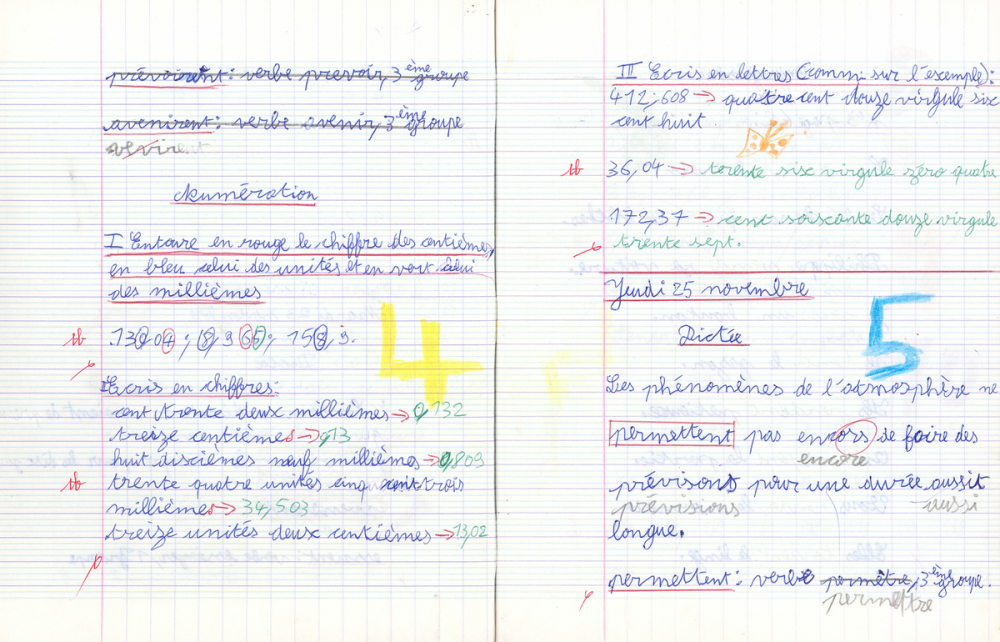 prévoirent : verbe prevoir, 3ème groupe
avenirent : verbe avenir, 3ème groupe
Numération
I Entoure en rouge le chiffre des centièmes,
en bleu celui des unités et en vert celui
des millièmes
tb 130,04 ; 18,965 ; 158,9.
II Ecris en chiffres :
cent trente deux millièmes → 0,132
treize centièmes → 0,13
huit discièmes neuf millièmes → 0,809
tb trente quatre unités cinq cent trois
millièmes → 34,503
treize unités deux centièmes → 13,02
4
III Ecris en lettres (comm sur l'exemple) :
412,608 → quatre cent douze virgule six
cent huit
tb 36,04 → terente six virgule zéro quatre
172,37 → cent soiscante douze virgule
trente sept.
Jeudi 25 novembre
Dictée
5
Les phénomènes de l'atmosphère ne
permettent pas encors de faire des
encore
prévisons pour une durée aussit
prévisions aussi
longue.
permettent : verbe permètre, 3ème groupe.
permettre